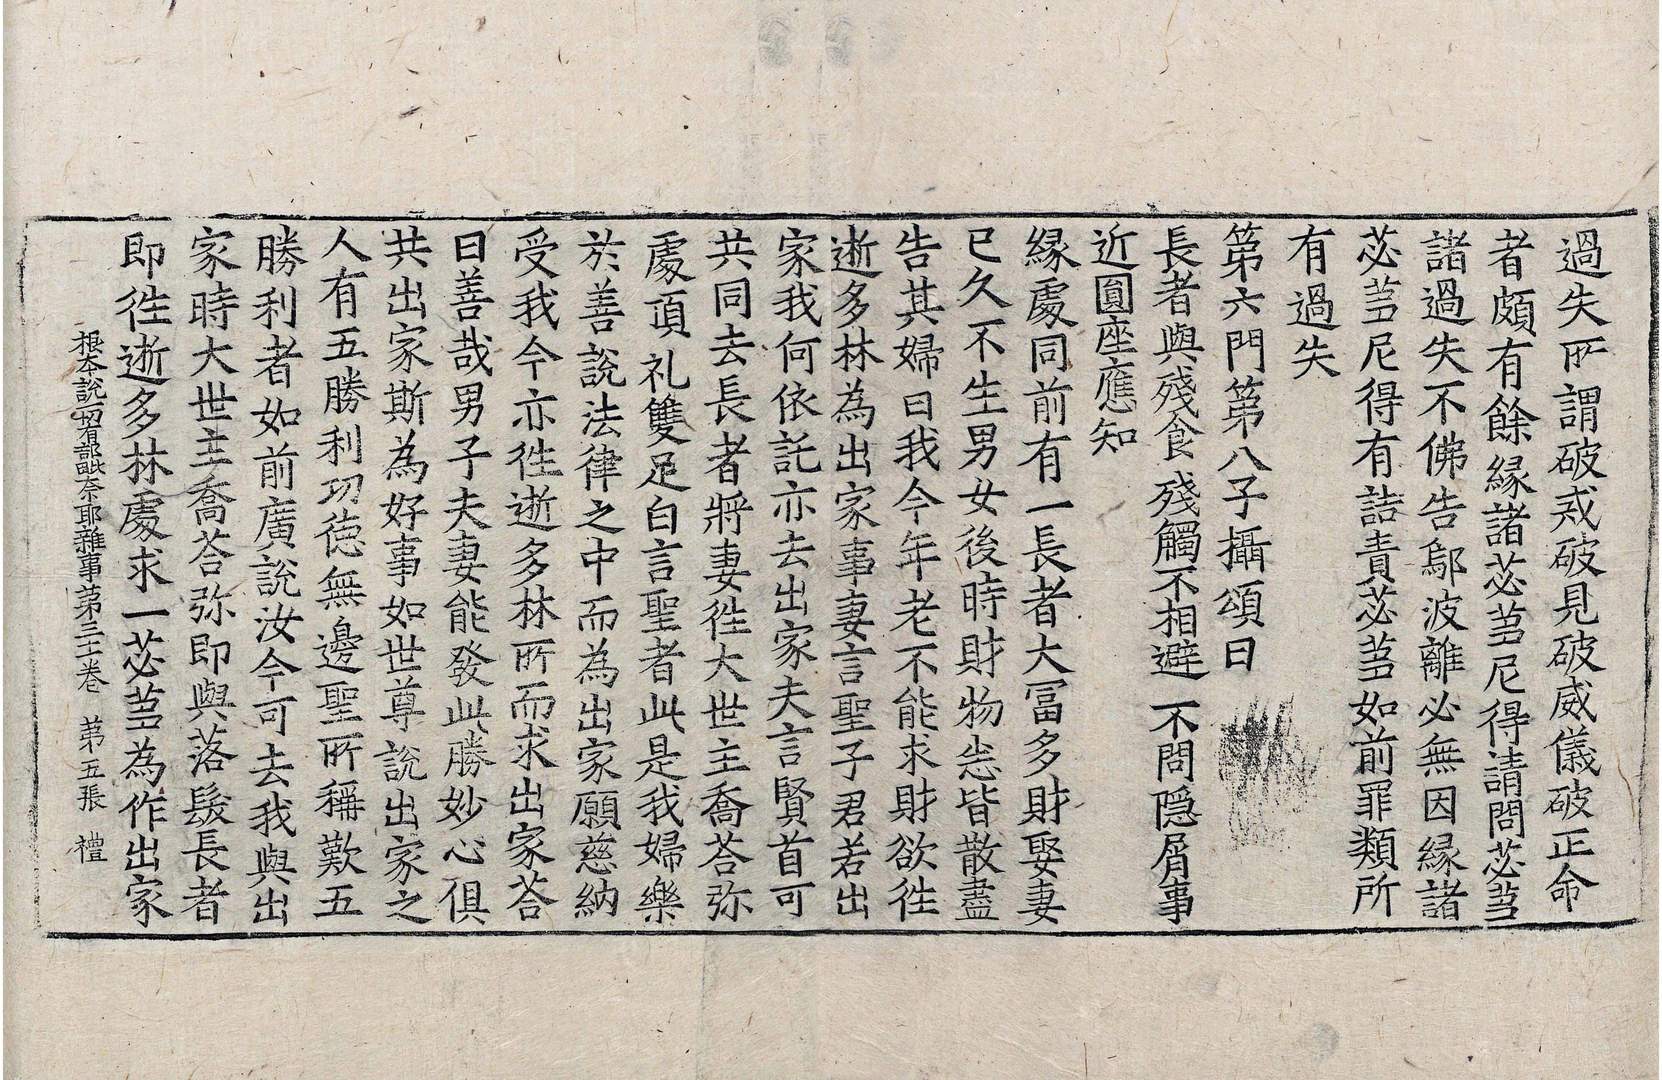 過失所謂破戒破見破威儀破正命
者頗有餘緣諸苾芻尼得請問苾芻
諸過失不佛告鄔波離必無因緣諸
苾芻尼得有詰責苾芻如前罪類所
有過失
第六門第八子攝頌曰
長者與殘食殘觸不相避不問隐屑事
近圓座應知
緣處同前有一長者大冨多財娶妻
已久不生男女後時財物悉皆散盡
告其婦曰我今年老不能求財欲往
逝多林為出家事妻言聖子君若出
家我何依託亦去出家夫言賢首可
共同去長者將妻往大世主喬荅弥
處頂礼雙足白言聖者此是我婦樂
於善說法律之中而為出家願慈納
受我今亦往逝多林所而求出家荅
曰善哉男子夫妻能發此勝妙心俱
共出家斯為好事如世尊說出家之
人有五勝利功德無邊聖所稱歎五
勝利者如前廣說汝今可去我與出
家時大世主喬荅弥即與落髮長者
即往逝多林處求一苾芻為作出家
根本說一切有部毗奈耶雜事第三十二卷 第五張 禮